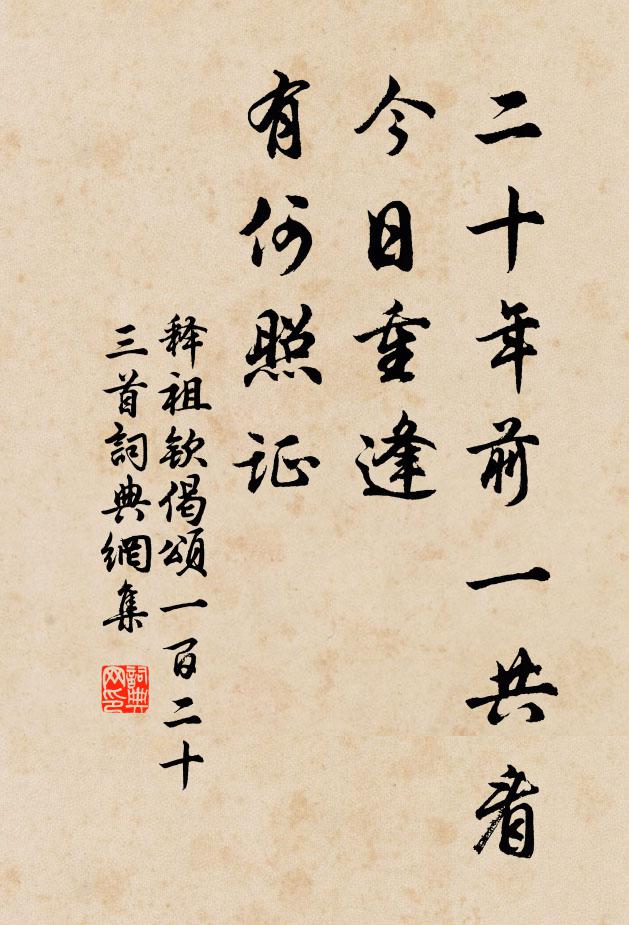 二十年前一共看
今日重逢
有何照证
释祖欽偈頌一百二十
三首詞典網集
詞典
网印